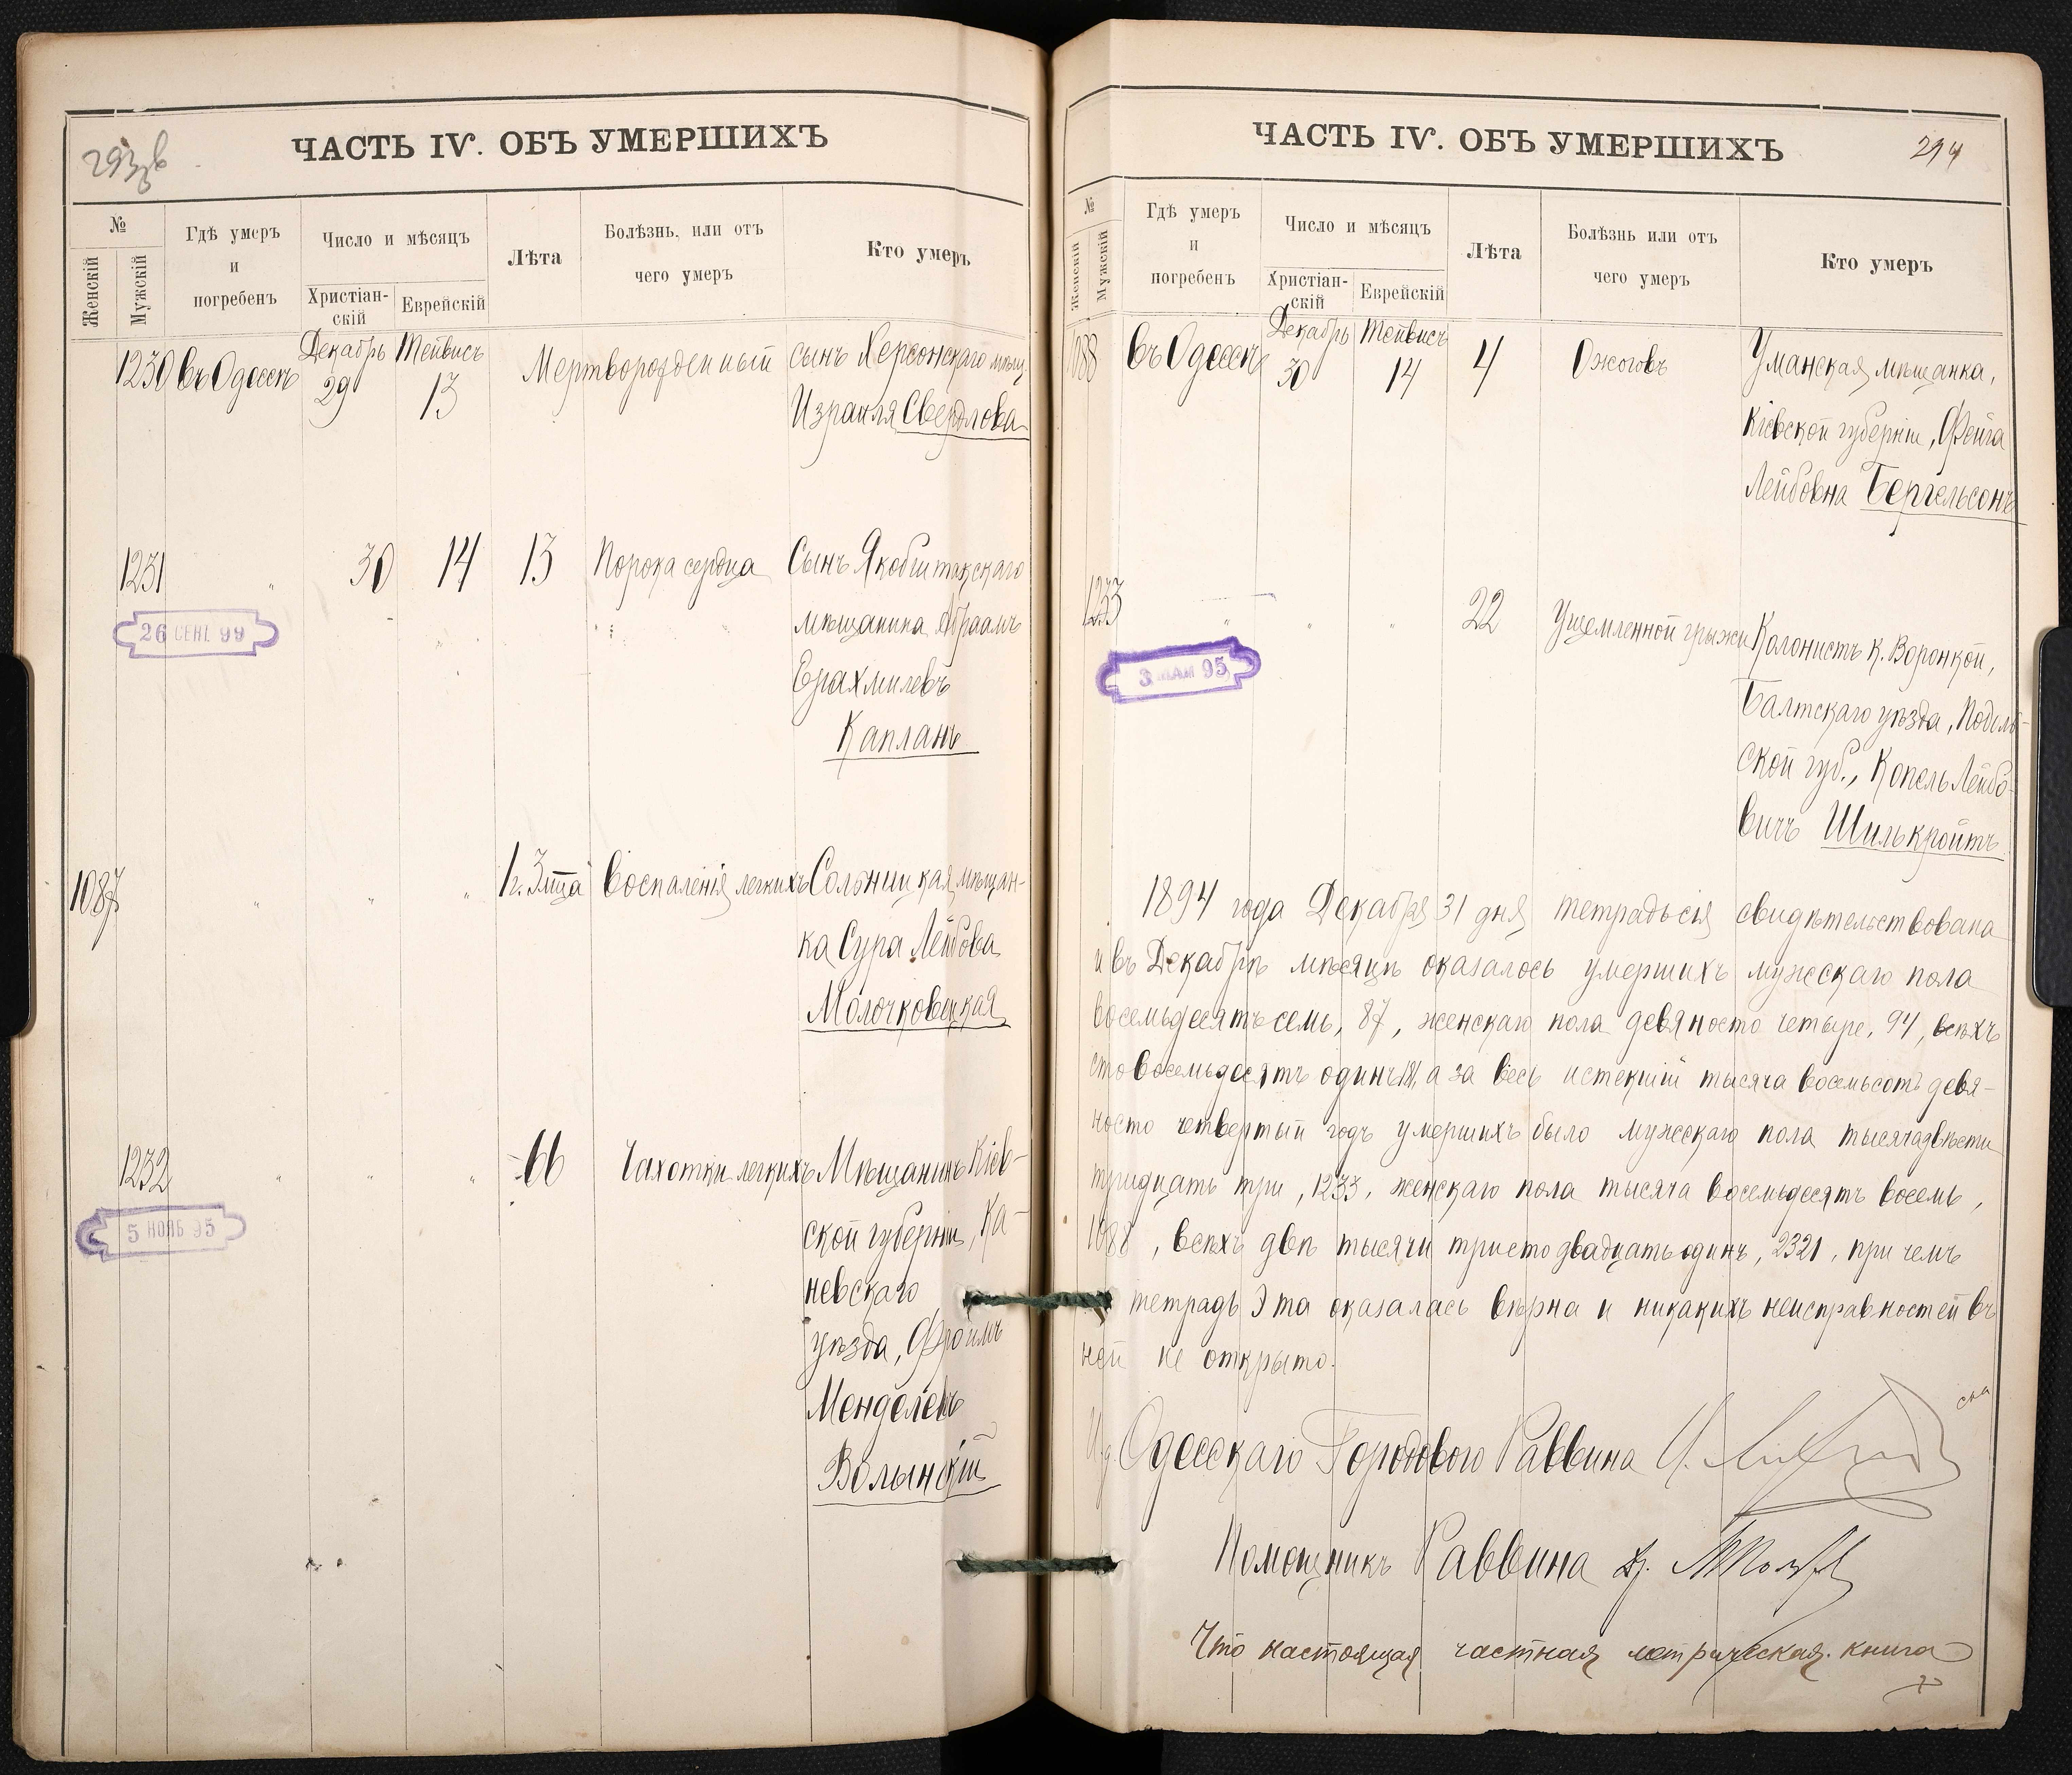 293 об
ЧАСТЬ IV. ОБЪ УМЕРШИХЪ
№
Женскій
Мужскій
Гдѣ умеръ
и
погребенъ
Число и мѣсяцъ
Христіан-
скій
Еврейскій
Лѣта
Болѣзнь, или отъ
чего умеръ
Кто умеръ
1230 въ Одессѣ Декабрь 29 Тейвисъ 13 Мертворожденный сынъ Херсонскаго мѣщ.
Израиля Свердлова
1231 " 30 14 13 Порока сердца Сынъ Якобштатскаго
мѣщанина Абраамъ
Ерахмилевъ
Капланъ
26 СЕНТ 99
1087 " " " 1 г. 3 мца Воспаленія легкихъ Сольницкая мѣщан-
ка Сура Лейбова
Молочковецкая
1232 " " " 66 Чахотки легкихъ Мѣщанинъ Кіев-
ской губерніи, Ка-
невскаго
уѣзда, Фроимъ
Менделевъ
Волынскій
5 НОЯБ 95
ЧАСТЬ IV. ОБЪ УМЕРШИХЪ
294
№
Женскій
Мужскій
Гдѣ умеръ
и
погребенъ
Число и мѣсяцъ
Христіан-
скій
Еврейскій
Лѣта
Болѣзнь или отъ
чего умеръ
Кто умеръ
1088 въ Одессѣ Декабрь 30 Тейвисъ 14 4 Ожоговъ Уманская мѣщанка,
Кіевской губерніи, Фейга
Лейбовна Бергельсонъ
1233 " " " 22 Ущемленной грыжи Колонистъ к. Воронкой,
Балтскаго уѣзда, Подоль-
ской губ., Копель Лейбо-
вичъ Шилькройтъ
3 МАЯ 95
1894 года Декабря 31 дня тетрадь сія свидѣтельствована
и въ Декабрѣ мѣсяцѣ оказалось умершихъ мужскаго пола
восемьдесятъ семь, 87, женскаго пола девяносто четыре, 94, всѣхъ
сто восемьдесятъ одинъ 181, а за весь истекшій тысяча восемьсотъ девя-
носто четвертый годъ умершихъ было мужскаго пола тысяча двѣсти
тридцать три, 1233, женскаго пола тысяча восемьдесятъ восемь,
1088, всѣхъ двѣ тысячи триста двадцать одинъ, 2321, при чемъ
тетрадь эта оказалась вѣрна и никакихъ неисправностей въ
ней не открыто.
И.д. Одесскаго Городового Раввина
Помощникъ Раввина
Что настоящая частная метрическая книга